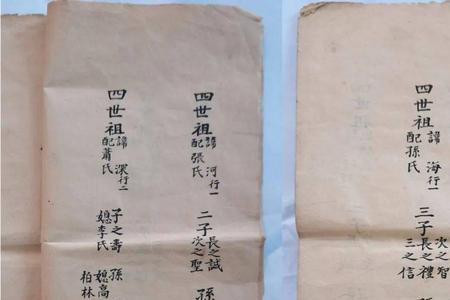 四世祖 諱海 行一
配孫氏
三子 長之禮
次之智
三之信
孫
四世祖 諱河 行一
配張氏
二子 長之誠
次之聖
孫
四世祖 諱深 行二
配蕭氏
子之壽 孫
媳李氏 媳高
柏林